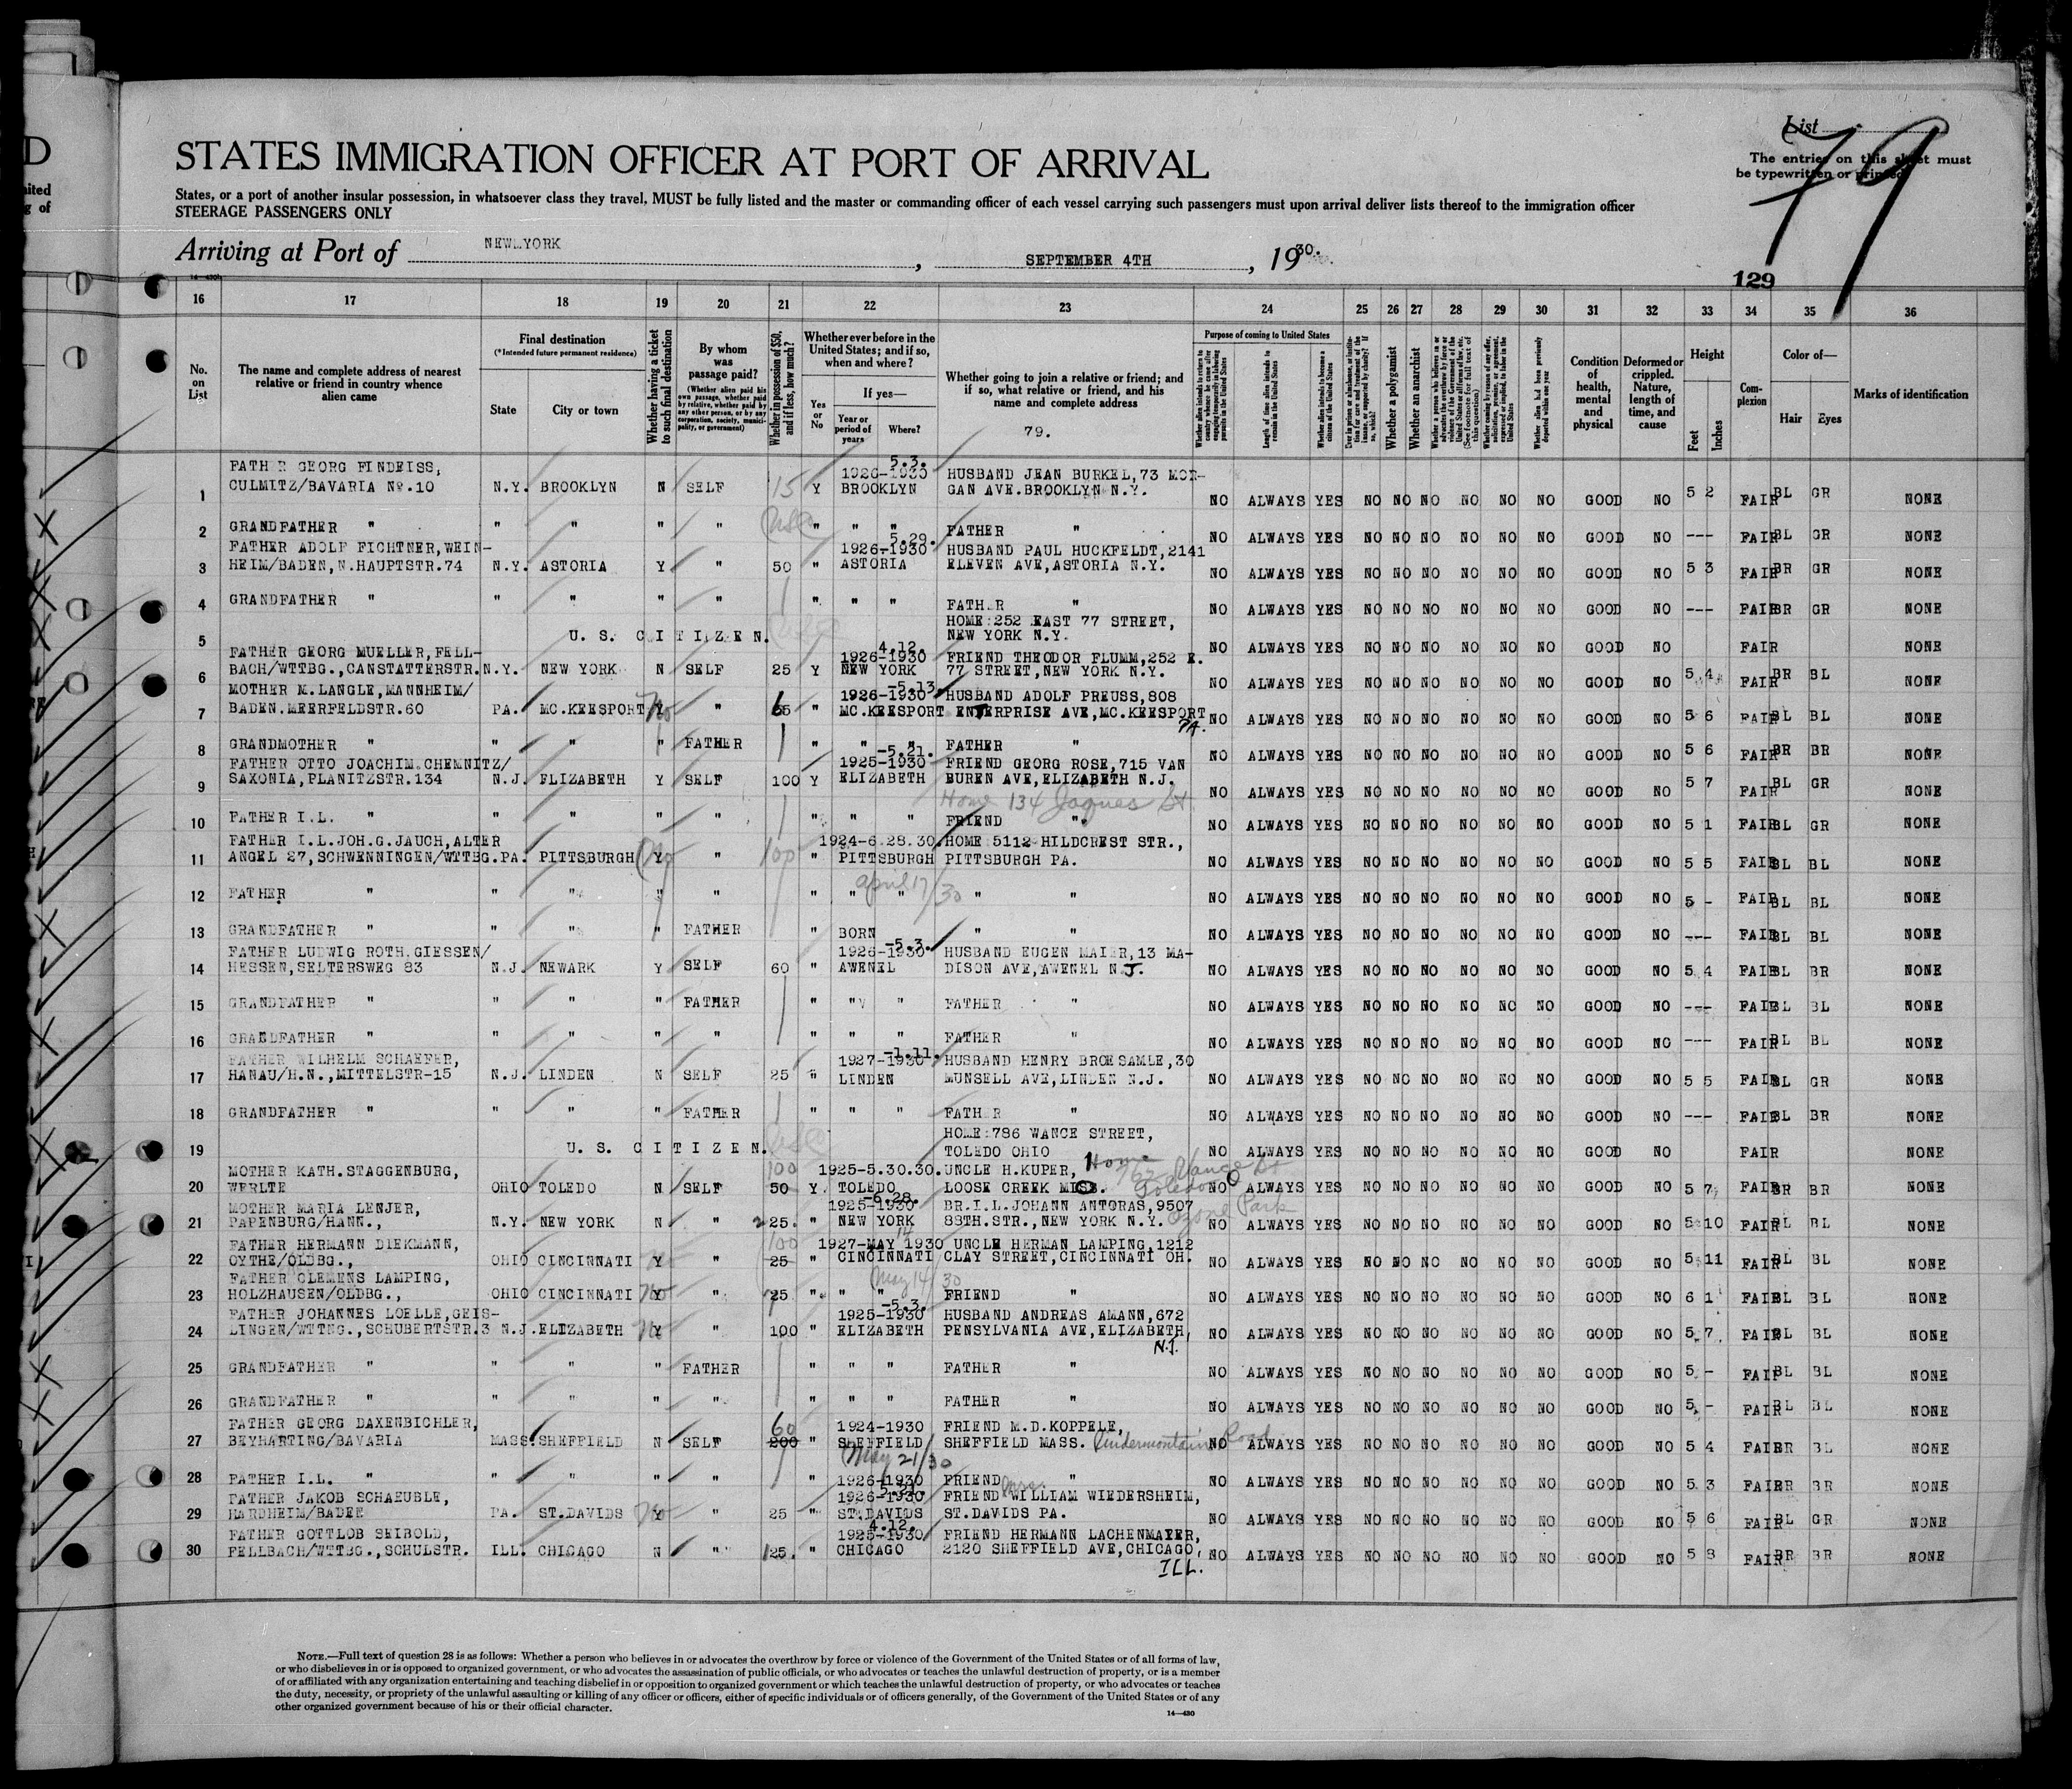 D
List
79
The entries on this sheet must
be typewritten or printed
STATES IMMIGRATION OFFICER AT PORT OF ARRIVAL
States, or a port of another insular possession, in whatsoever class they travel, MUST be fully listed and the master or commanding officer of each vessel carrying such passengers must upon arrival deliver lists thereof to the immigration officer
STEERAGE PASSENGERS ONLY
Arriving at Port of NEW YORK , SEPTEMBER 4TH , 1930.
129
16 17 18 19 20 21 22 23 24 25 26 27 28 29 30 31 32 33 34 35 36
No. on List
The name and complete address of nearest relative or friend in country whence alien came
Final destination
(*Intended future permanent residence)
State City or town
Whether having a ticket to such final destination
By whom was passage paid?
(Whether alien paid his own passage, whether paid by relative, whether paid by any other person, or by any corporation, society, municipality, or government)
Whether in possession of $50, and if less, how much?
Whether ever before in the United States; and if so, when and where?
Yes or No
If yes—
Year or period of years Where?
Whether going to join a relative or friend; and if so, what relative or friend, and his name and complete address
79.
Purpose of coming to United States
Length of time alien intends to remain in the United States
Whether alien intends to become a citizen of the United States
Whether a polygamist
Whether an anarchist
Condition of health, mental and physical
Deformed or crippled. Nature, length of time, and cause
Height
Feet Inches
Com-plexion
Color of—
Hair Eyes
Marks of identification
FATHER GEORG FINDEISS, 5.3. 1926-1930 HUSBAND JEAN BURKEL, 73 MOR-
1 CULMITZ/BAVARIA No.10 N.Y. BROOKLYN N SELF 15 Y BROOKLYN GAN AVE.BROOKLYN N.Y. NO ALWAYS YES NO NO NO NO NO NO GOOD NO 5 2 FAIR BL GR NONE
2 GRANDFATHER " " " " " " " " FATHER " NO ALWAYS YES NO NO NO NO NO NO GOOD NO --- FAIR BL GR NONE
FATHER ADOLF FICHTNER, WEIN- 5.29. 1926-1930 HUSBAND PAUL HUCKFELDT, 2141
3 HEIM/BADEN, N.HAUPTSTR.74 N.Y. ASTORIA Y " 50 " ASTORIA ELEVEN AVE, ASTORIA N.Y. NO ALWAYS YES NO NO NO NO NO NO GOOD NO 5 3 FAIR BR GR NONE
4 GRANDFATHER " " " " " " " " FATHER " NO ALWAYS YES NO NO NO NO NO NO GOOD NO --- FAIR BR GR NONE
HOME: 252 EAST 77 STREET,
5 U. S. CITIZEN. NEW YORK N.Y. NO ALWAYS YES NO NO NO NO NO NO GOOD NO FAIR NONE
FATHER GEORG MUELLER, FELL- 4.12. 1926-1930 FRIEND THEODOR FLUMM, 252 E.
6 BACH/WTTBG., CANSTATTERSTR. N.Y. NEW YORK N SELF 25 Y NEW YORK 77 STREET, NEW YORK N.Y. NO ALWAYS YES NO NO NO NO NO NO GOOD NO 5 4 FAIR BR BL NONE
MOTHER M.LANGLE, MANNHEIM/ 1926-1930 -5.13. HUSBAND ADOLF PREUSS, 808
7 BADEN.MEERFELDSTR.60 PA. MC.KEESPORT Y " 65 " MC.KEESPORT ENTERPRISE AVE, MC.KEESPORT PA. NO ALWAYS YES NO NO NO NO NO NO GOOD NO 5 6 FAIR BL BL NONE
8 GRANDMOTHER " " " " FATHER " " " FATHER " NO ALWAYS YES NO NO NO NO NO NO GOOD NO 5 6 FAIR BR BR NONE
FATHER OTTO JOACHIM.CHEMNITZ/ -5.21. 1925-1930 FRIEND GEORG ROSE, 715 VAN
9 SAXONIA, PLANITZSTR.134 N.J. ELIZABETH Y SELF 100 Y ELIZABETH BUREN AVE, ELIZABETH N.J. NO ALWAYS YES NO NO NO NO NO NO GOOD NO 5 7 FAIR BL GR NONE
Home 134 Jaques St
10 FATHER I.L. " " " " " " " " FRIEND " NO ALWAYS YES NO NO NO NO NO NO GOOD NO 5 1 FAIR BL GR NONE
FATHER I.L.JOH.G.JAUCH, ALTER 1924-6.28.30. HOME 5112 HILDCREST STR.,
11 ANGEL 27, SCHWENNINGEN/WTTBG. PA. PITTSBURGH Y " 100 " PITTSBURGH PITTSBURGH PA. NO ALWAYS YES NO NO NO NO NO NO GOOD NO 5 5 FAIR BL BL NONE
april 17/30
12 FATHER " " " " " " " " " " NO ALWAYS YES NO NO NO NO NO NO GOOD NO 5 - FAIR BL BL NONE
13 GRANDFATHER " " " " FATHER " BORN " " NO ALWAYS YES NO NO NO NO NO NO GOOD NO --- FAIR BL BL NONE
FATHER LUDWIG ROTH.GIESSEN/ 1926-1930 -5.3. HUSBAND EUGEN MAIER, 13 MA-
14 HESSEN, SELTERSWEG 83 N.J. NEWARK Y SELF 60 " AWENEL DISON AVE, AWENEL N.J. NO ALWAYS YES NO NO NO NO NO NO GOOD NO 5 4 FAIR BL BR NONE
15 GRANDFATHER " " " " FATHER " " " FATHER " NO ALWAYS YES NO NO NO NO NO NO GOOD NO --- FAIR BL BL NONE
16 GRANDFATHER " " " " " " " " FATHER " NO ALWAYS YES NO NO NO NO NO NO GOOD NO --- FAIR BL BL NONE
FATHER WILHELM SCHAEFER, 1927-1930 -1.11. HUSBAND HENRY BROESAMLE, 30
17 HANAU/H.N., MITTELSTR-15 N.J. LINDEN N SELF 25 " LINDEN MUNSELL AVE, LINDEN N.J. NO ALWAYS YES NO NO NO NO NO NO GOOD NO 5 5 FAIR BL GR NONE
18 GRANDFATHER " " " " FATHER " " " FATHER " NO ALWAYS YES NO NO NO NO NO NO GOOD NO --- FAIR BL BR NONE
HOME: 786 WANCE STREET,
19 U. S. CITIZEN. TOLEDO OHIO NO ALWAYS YES NO NO NO NO NO NO GOOD NO FAIR NONE
MOTHER KATH.STAGGENBURG, 100 1925-5.30.30. UNCLE H.KUPER, Home
20 WERLTE OHIO TOLEDO N SELF 50 Y TOLEDO LOOSE CREEK MISS. Toledo O NO ALWAYS YES NO NO NO NO NO NO GOOD NO 5 7 FAIR BR BR NONE
MOTHER MARIA LENJER, -6.28. 1925-1930 BR.I.L.JOHANN ANTORAS, 9507
21 PAPENBURG/HANN., N.Y. NEW YORK N " 25. " NEW YORK 88TH.STR., NEW YORK N.Y. Ozone Park NO ALWAYS YES NO NO NO NO NO NO GOOD NO 5 10 FAIR BL BL NONE
FATHER HERMANN DIEKMANN, 100 1927-MAY 14 1930 UNCLE HERMAN LAMPING, 1212
22 OYTHE/OLDBG., OHIO CINCINNATI Y " 25 " CINCINNATI CLAY STREET, CINCINNATI OH. NO ALWAYS YES NO NO NO NO NO NO GOOD NO 5 11 FAIR BL BL NONE
FATHER CLEMENS LAMPING, May 14/30
23 HOLZHAUSEN/OLDBG., OHIO CINCINNATI " 25 " " " FRIEND " NO ALWAYS YES NO NO NO NO NO NO GOOD NO 6 1 FAIR BL BL NONE
FATHER JOHANNES LOELLE, GEIS- -5.3. 1925-1930 HUSBAND ANDREAS AMANN, 672
24 LINGEN/WTTNG., SCHUBERTSTR.3 N.J. ELIZABETH Y " 100 " ELIZABETH PENSYLVANIA AVE, ELIZABETH, N.J. NO ALWAYS YES NO NO NO NO NO NO GOOD NO 5 7 FAIR BL BL NONE
25 GRANDFATHER " " " " FATHER " " " FATHER " NO ALWAYS YES NO NO NO NO NO NO GOOD NO 5 - FAIR BL BL NONE
26 GRANDFATHER " " " " " " " " FATHER " NO ALWAYS YES NO NO NO NO NO NO GOOD NO 5 - FAIR BL BL NONE
FATHER GEORG DAXENBICHLER, 60 1924-1930 FRIEND M.D.KOPPELE,
27 BEYHARTING/BAVARIA MASS. SHEFFIELD N SELF 200 " SHEFFIELD SHEFFIELD MASS. Undermountain Road NO ALWAYS YES NO NO NO NO NO NO GOOD NO 5 4 FAIR BR BL NONE
May 21/30
28 FATHER I.L. " " " " " " 1926-1930 FRIEND " NO ALWAYS YES NO NO NO NO NO NO GOOD NO 5 3 FAIR BR BR NONE
FATHER JAKOB SCHAEUBLE, 5.21. 1926-1930 FRIEND Mrs. WILLIAM WIEDERSHEIM,
29 HARDHEIM/BADEN PA. ST.DAVIDS Y " 25 " ST.DAVIDS ST.DAVIDS PA. NO ALWAYS YES NO NO NO NO NO NO GOOD NO 5 6 FAIR BL GR NONE
FATHER GOTTLOB SEIBOLD, 4.12. 1925-1930 FRIEND HERMANN LACHENMAYER,
30 FELLBACH/WTTBG., SCHULSTR. ILL. CHICAGO N " 125. " CHICAGO 2120 SHEFFIELD AVE, CHICAGO, ILL. NO ALWAYS YES NO NO NO NO NO NO GOOD NO 5 8 FAIR BR BR NONE
NOTE.—Full text of question 28 is as follows: Whether a person who believes in or advocates the overthrow by force or violence of the Government of the United States or of all forms of law,
or who disbelieves in or is opposed to organized government, or who advocates the assassination of public officials, or who advocates or teaches the unlawful destruction of property, or is a member
of or affiliated with any organization entertaining and teaching disbelief in or opposition to organized government or which teaches the unlawful destruction of property, or who advocates or teaches
the duty, necessity, or propriety of the unlawful assaulting or killing of any officer or officers, either of specific individuals or of officers generally, of the Government of the United States or of any
other organized government because of his or their official character.
14—430